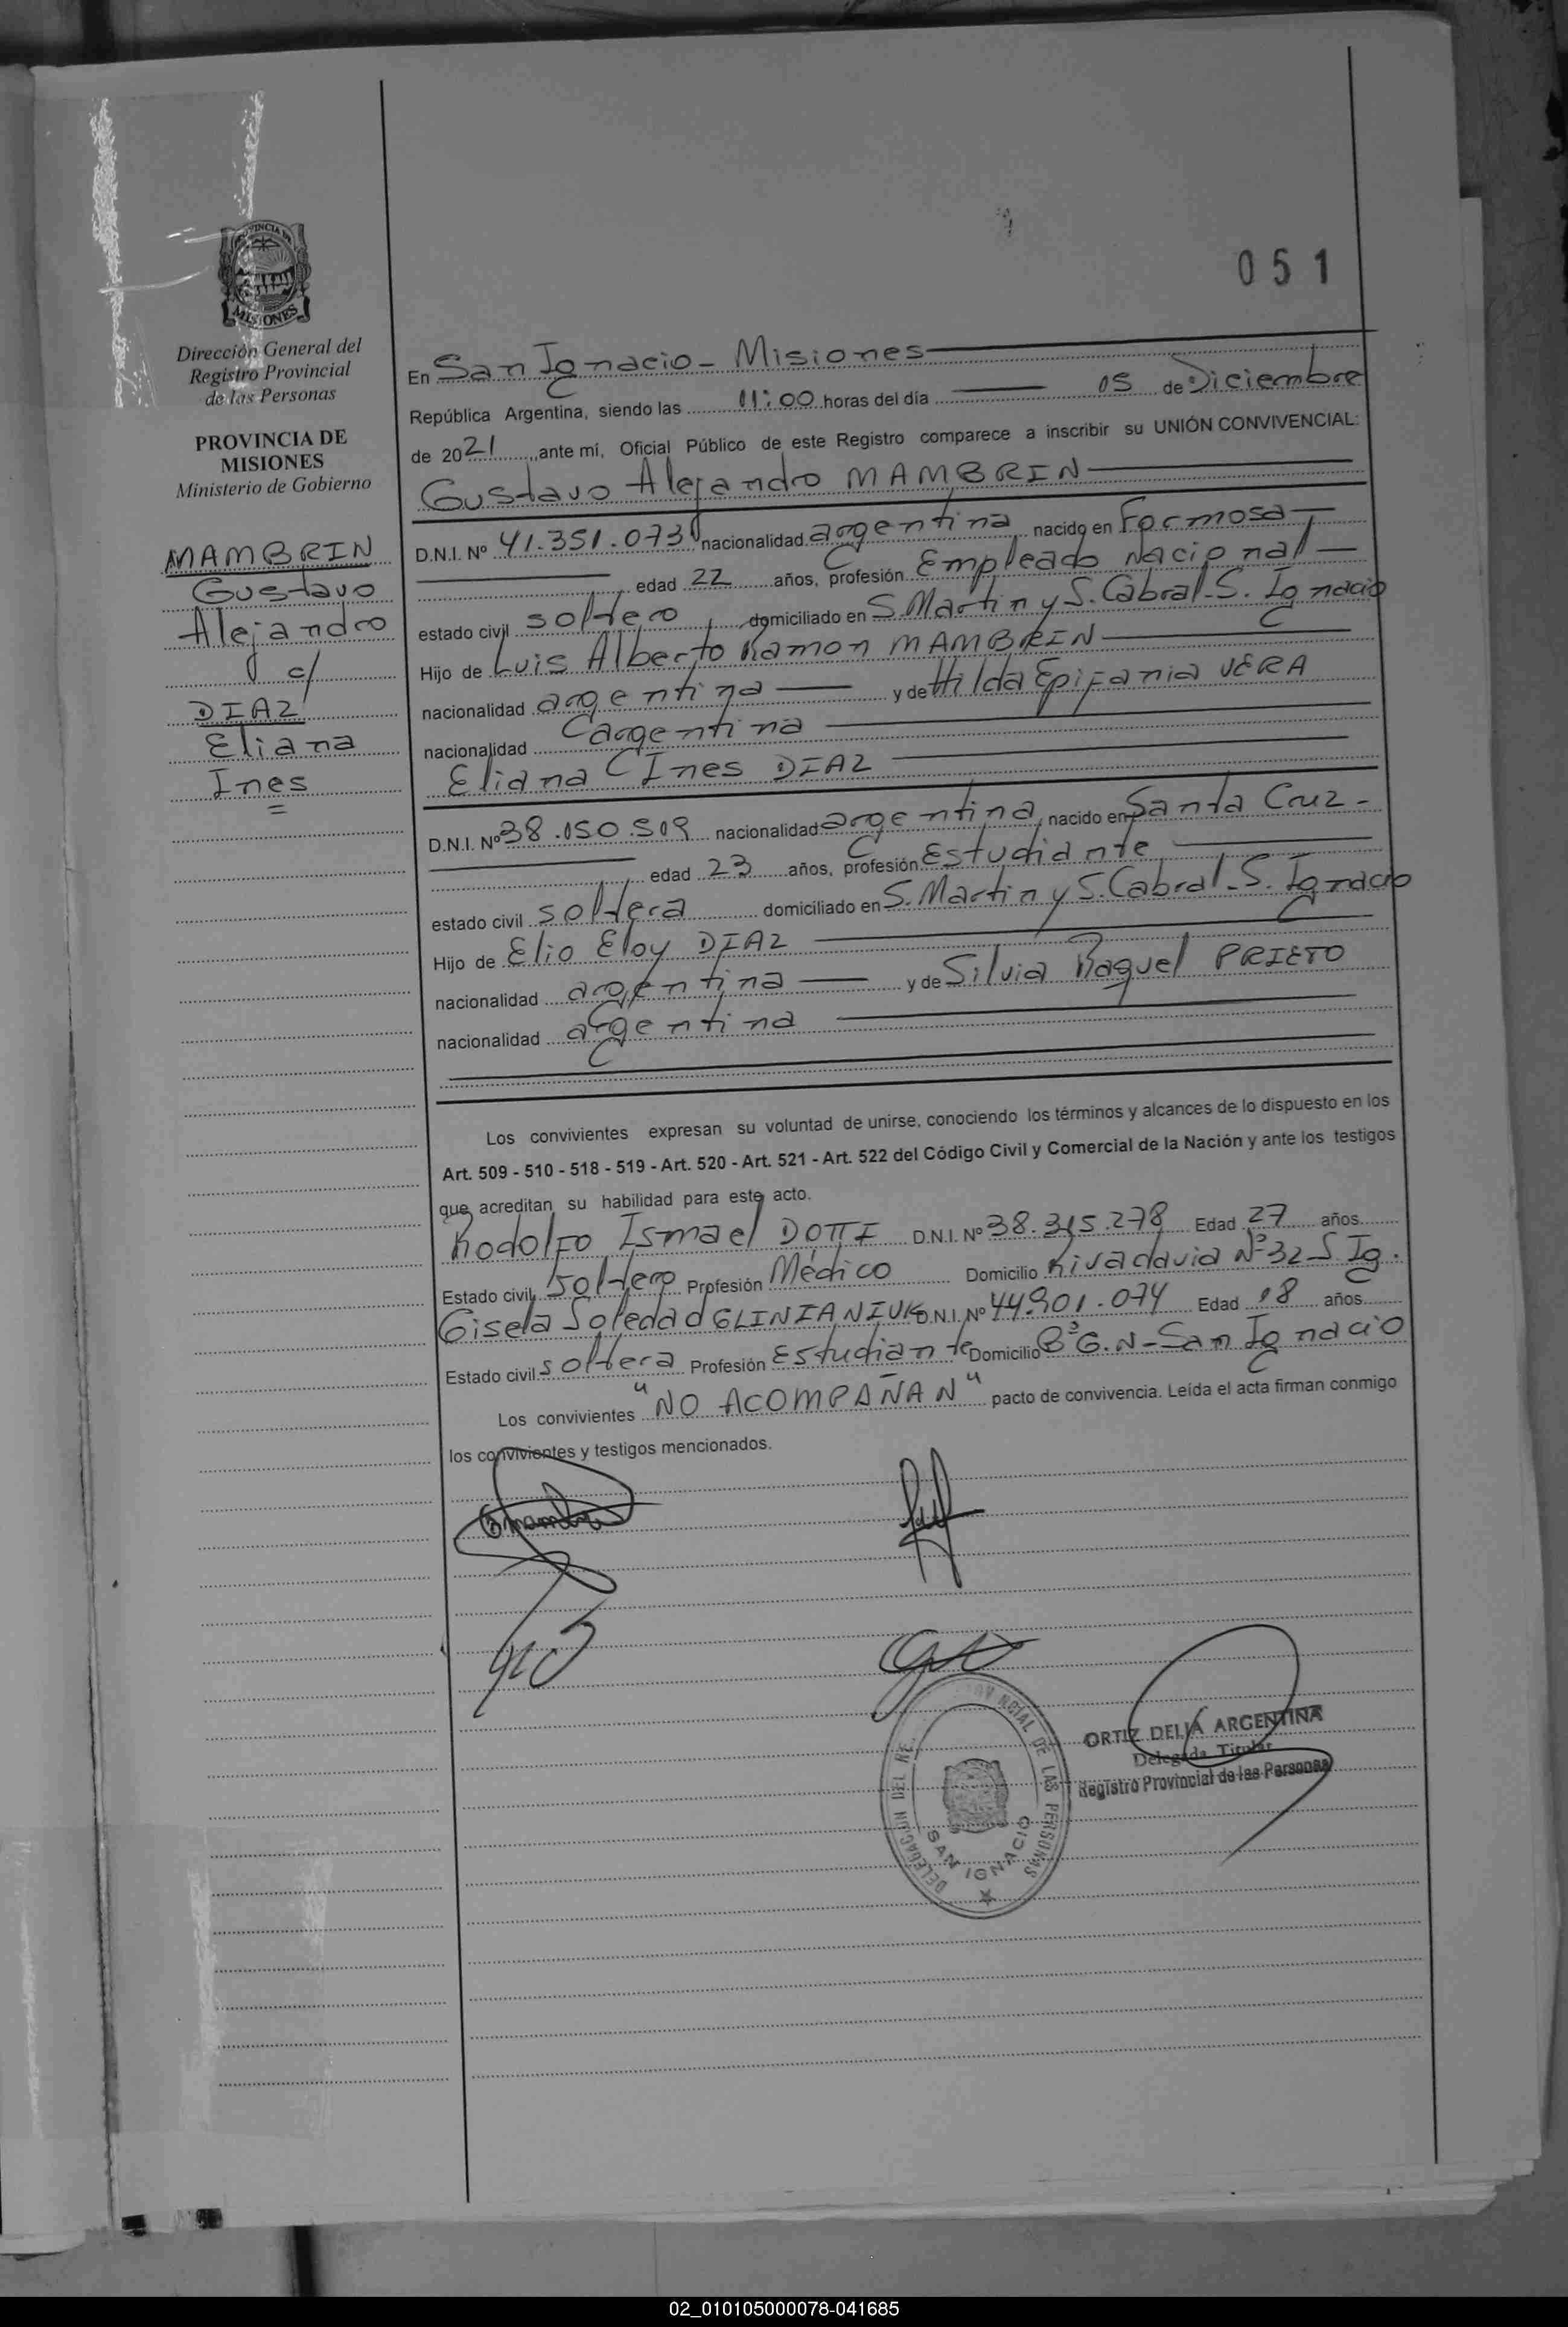 051
PROVINCIA DE
MISIONES
Dirección General del
Registro Provincial
de las Personas
PROVINCIA DE
MISIONES
Ministerio de Gobierno
MAMBRIN
Gustavo
Alejandro
c/
DIAZ
Eliana
Ines
En San Ignacio - Misiones
República Argentina, siendo las 11:00 horas del día 05 de Diciembre
de 2021, ante mí, Oficial Público de este Registro comparece a inscribir su UNIÓN CONVIVENCIAL:
Gustavo Alejandro MAMBRIN
D.N.I. Nº 41.351.073 nacionalidad argentina nacido en Formosa
edad 22 años, profesión Empleado Nacional
estado civil soltero domiciliado en S. Martin y S. Cabral - S. Ignacio
Hijo de Luis Alberto Ramon MAMBRIN
nacionalidad argentina y de Hilda Epifania VERA
nacionalidad argentina
Eliana Ines DIAZ
D.N.I. Nº 38.050.509 nacionalidad argentina, nacido en Santa Cruz -
edad 23 años, profesión Estudiante
estado civil soltera domiciliado en S. Martin y S. Cabral - S. Ignacio
Hijo de Elio Eloy DIAZ
nacionalidad argentina y de Silvia Raquel PRIETO
nacionalidad argentina
Los convivientes expresan su voluntad de unirse, conociendo los términos y alcances de lo dispuesto en los
Art. 509 - 510 - 518 - 519 - Art. 520 - Art. 521 - Art. 522 del Código Civil y Comercial de la Nación y ante los testigos
que acreditan su habilidad para este acto.
Rodolfo Ismael DOTTI D.N.I. Nº 38.315.278 Edad 27 años
Estado civil soltero Profesión Médico Domicilio Rivadavia Nº 32 - S. Ig.
Gisela Soledad GLINIANIUK D.N.I. Nº 44.901.074 Edad 18 años
Estado civil soltera Profesión Estudiante Domicilio Bº G. N - San Ignacio
Los convivientes "NO ACOMPAÑAN" pacto de convivencia. Leída el acta firman conmigo
los convivientes y testigos mencionados.
DELEGACION DEL RE NCIAL DE LAS PERSONAS
SAN IGNACIO
ORTIZ DELIA ARGENTINA
Delegada Titular
Registro Provincial de las Personas
02_010105000078-041685